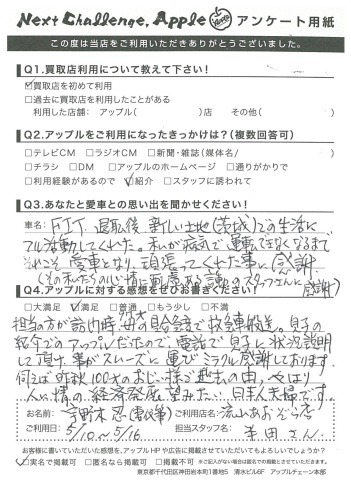 Next Challenge, Apple アンケート用紙
この度は当店をご利用いただきありがとうございました。
Q1.買取店利用について教えて下さい!
☑買取店を初めて利用
□過去に買取店を利用したことがある
利用した店舗: アップル( )店 その他( )
Q2.アップルをご利用になったきっかけは?(複数回答可)
□テレビCM □ラジオCM □新聞・雑誌(媒体名/ )
□チラシ □DM □アップルのホームページ □通りがかりで
□利用経験があるので ☑紹介 □スタッフに誘われて
Q3.あなたと愛車との思い出を聞かせください!
車名: FIT 退職後新しい土地(茨城)での生活に
フル活動してくれた。私が病気で運転できなくなるまで
それこそ愛車となり、頑張ってくれた事に感謝
(その私たちの心情に配慮ある談のスタッフさんに感謝)
Q4.アップルに対する感想をぜひお書きください!
□大満足 ☑満足 □普通 □もう少し □不満
担当の方が訪内時、母の具合急で救急搬送。息子の
紹介でのアップルだったので、電話で息子に状況説明
して頂け、事がスムーズに運びミラクル感謝しております。
何えば昨秋100才のおじい様で逝去の由、やはり
人の情の経済発展望みたい日本人夫婦です。
お名前: 忍 ご利用店名: 流山あおぞら店
ご利用日: 5/10〜5/16 担当スタッフ名: 半田さん
お客様に書いていただいた感想を、アップルHPや広告に掲載させていただいてもよろしいでしょうか?
☑実名で掲載可 □匿名なら掲載可 □掲載不可 ※ご記入がない場合は匿名での掲載とさせていただきます。
東京都千代田区神田岩本町1番地5 清水ビル6F アップルチェーン本部